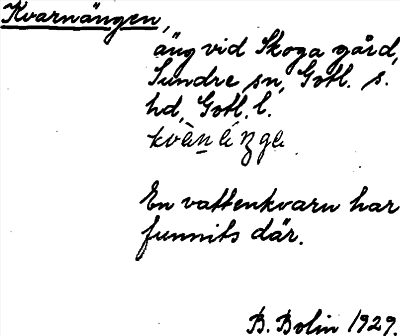 Kvarnängen,
äng vid Skoga gård,
Sundre sn, Gotl. s.
hd, Gotl. l.
En vattenkvarn har
funnits där.
B. Bolin 1929.